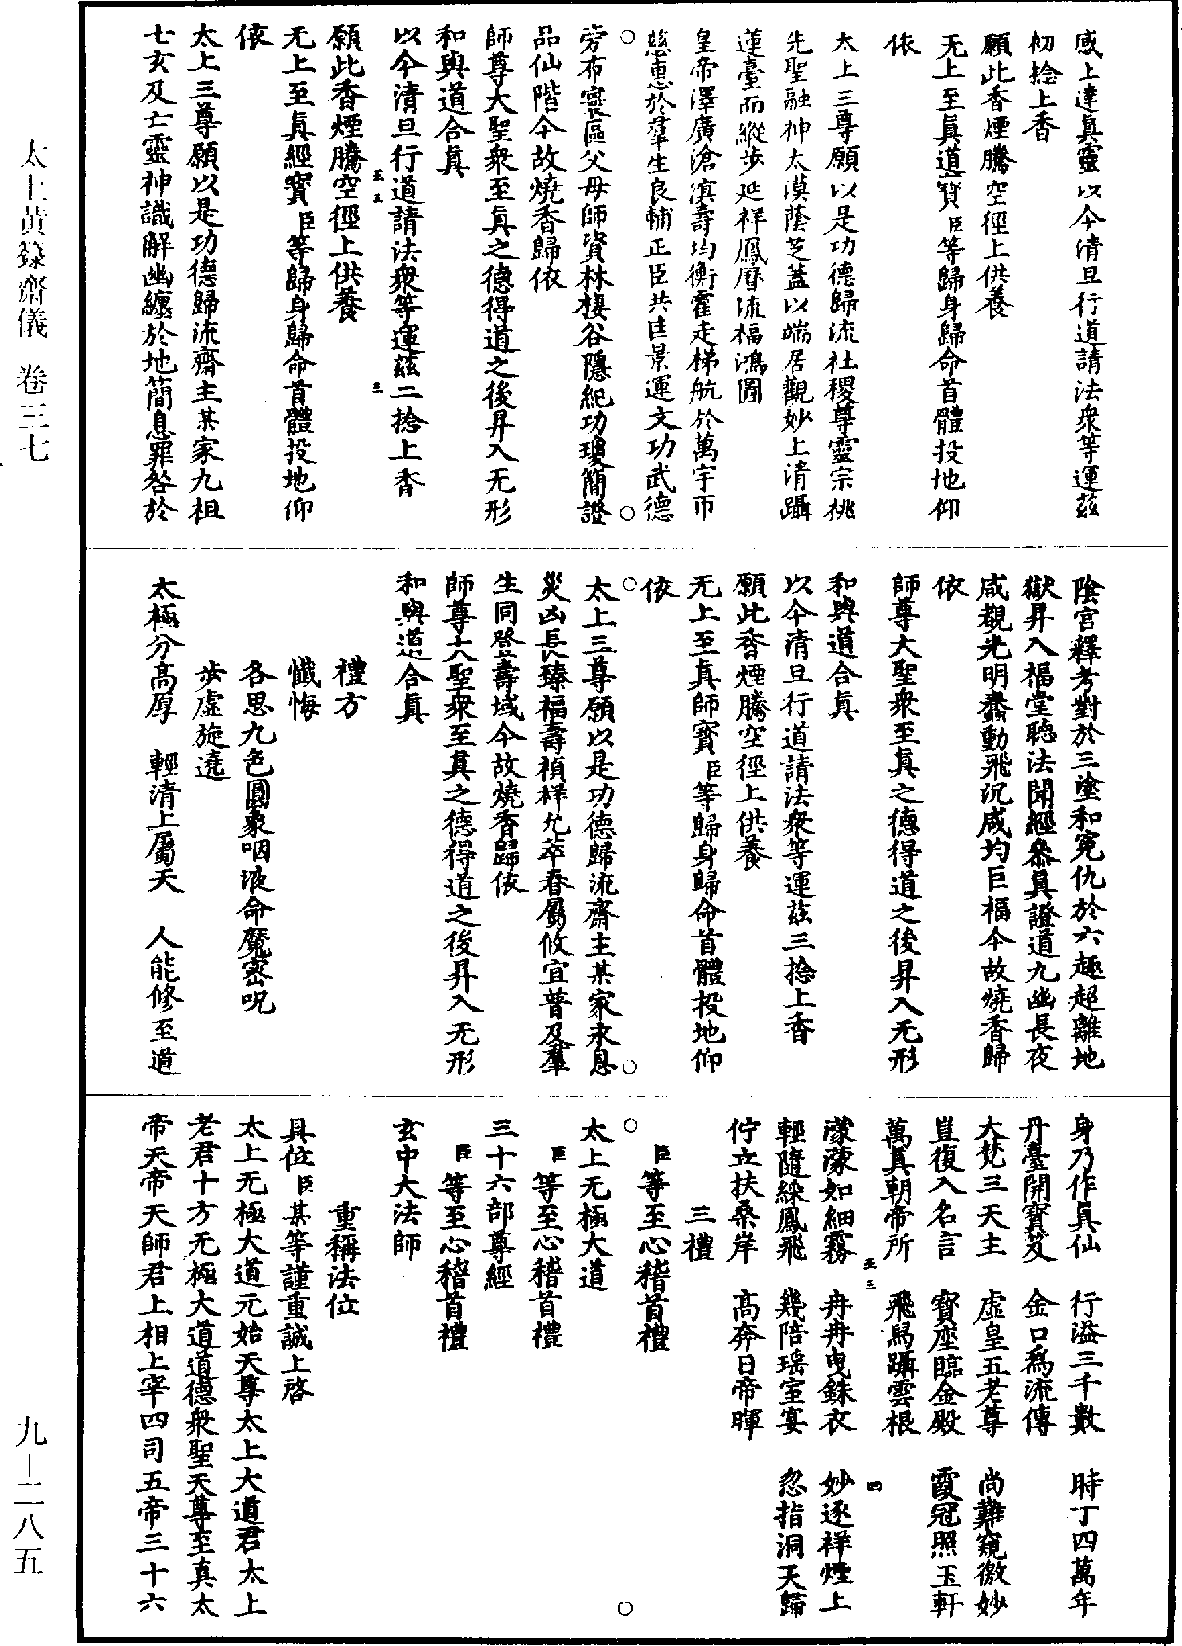 感上達真靈以今清旦行道請法衆等運茲
初捻上香
願此香煙騰空徑上供養
无上至真道寶臣等歸身歸命首體投地仰
依
太上三尊願以是功德歸流社稷尊靈宗祧
先聖融神太漠蔭芝蓋以端居觀妙上清躡
蓮臺而縱步延祥鳳曆流福鴻圖
皇帝澤廣滄溟壽均衡霍走梯航於萬宇帀
慈惠於羣生良輔正臣共匡景運文功武德
旁布寰區父母師資林棲谷隱紀功瓊簡證
品仙階今故燒香歸依
師尊大聖衆至真之德得道之後昇入无形
和與道合真
以今清旦行道請法衆等運茲二捻上香
願此香煙騰空徑上供養
无上至真經寶臣等歸身歸命首體投地仰
依
太上三尊願以是功德歸流齋主某家九祖
七玄及亡靈神識解幽纏於地簡息罪咎於
陰宫釋考對於三塗和寃仇於六趣超離地
獄昇入福堂聽法聞經叅真證道九幽長夜
咸覩光明蠢動飛沉咸均巨福今故燒香歸
依
師尊大聖衆至真之德得道之後昇入无形
和與道合真
以今清旦行道請法衆等運茲三捻上香
願此香煙騰空徑上供養
无上至真師寶臣等歸身歸命首體投地仰
依
太上三尊願以是功德歸流齋主某家永息
災凶長臻福壽禎祥允萃眷屬攸宜普及羣
生同登壽域今故燒香歸依
師尊大聖衆至真之德得道之後昇入无形
和與道合真
禮方
懺悔
各思九色圓象咽液命魔密呪
步虛旋遶
太極分高厚　輕清上屬天　人能修至道
身乃作真仙　行溢三千數　時丁四萬年
丹臺開寶笈　金口爲流傳
大梵三天主　虛皇五老尊　尚難窺微妙
豈復入名言　寳座臨金殿　霞冠照玉軒
萬真朝帝所　飛舄躡雲根
濛濛如細霧　冉冉曳銖衣　妙逐祥煙上
輕隨綵鳳飛　幾陪瑶室宴　忽指洞天歸
佇立扶桑岸　高奔日帝暉
三禮
臣等至心稽首禮
太上无極大道
臣等至心稽首禮
三十六部尊經
臣等至心稽首禮
玄中大法師
重稱法位
具位臣某等謹重誠上啓
太上无極大道元始天尊太上大道君太上
老君十方无極大道道德衆聖天尊至真太
帝天帝天師君上相上宰四司五帝三十六
太上黃籙齋儀　卷三七
九—二八五